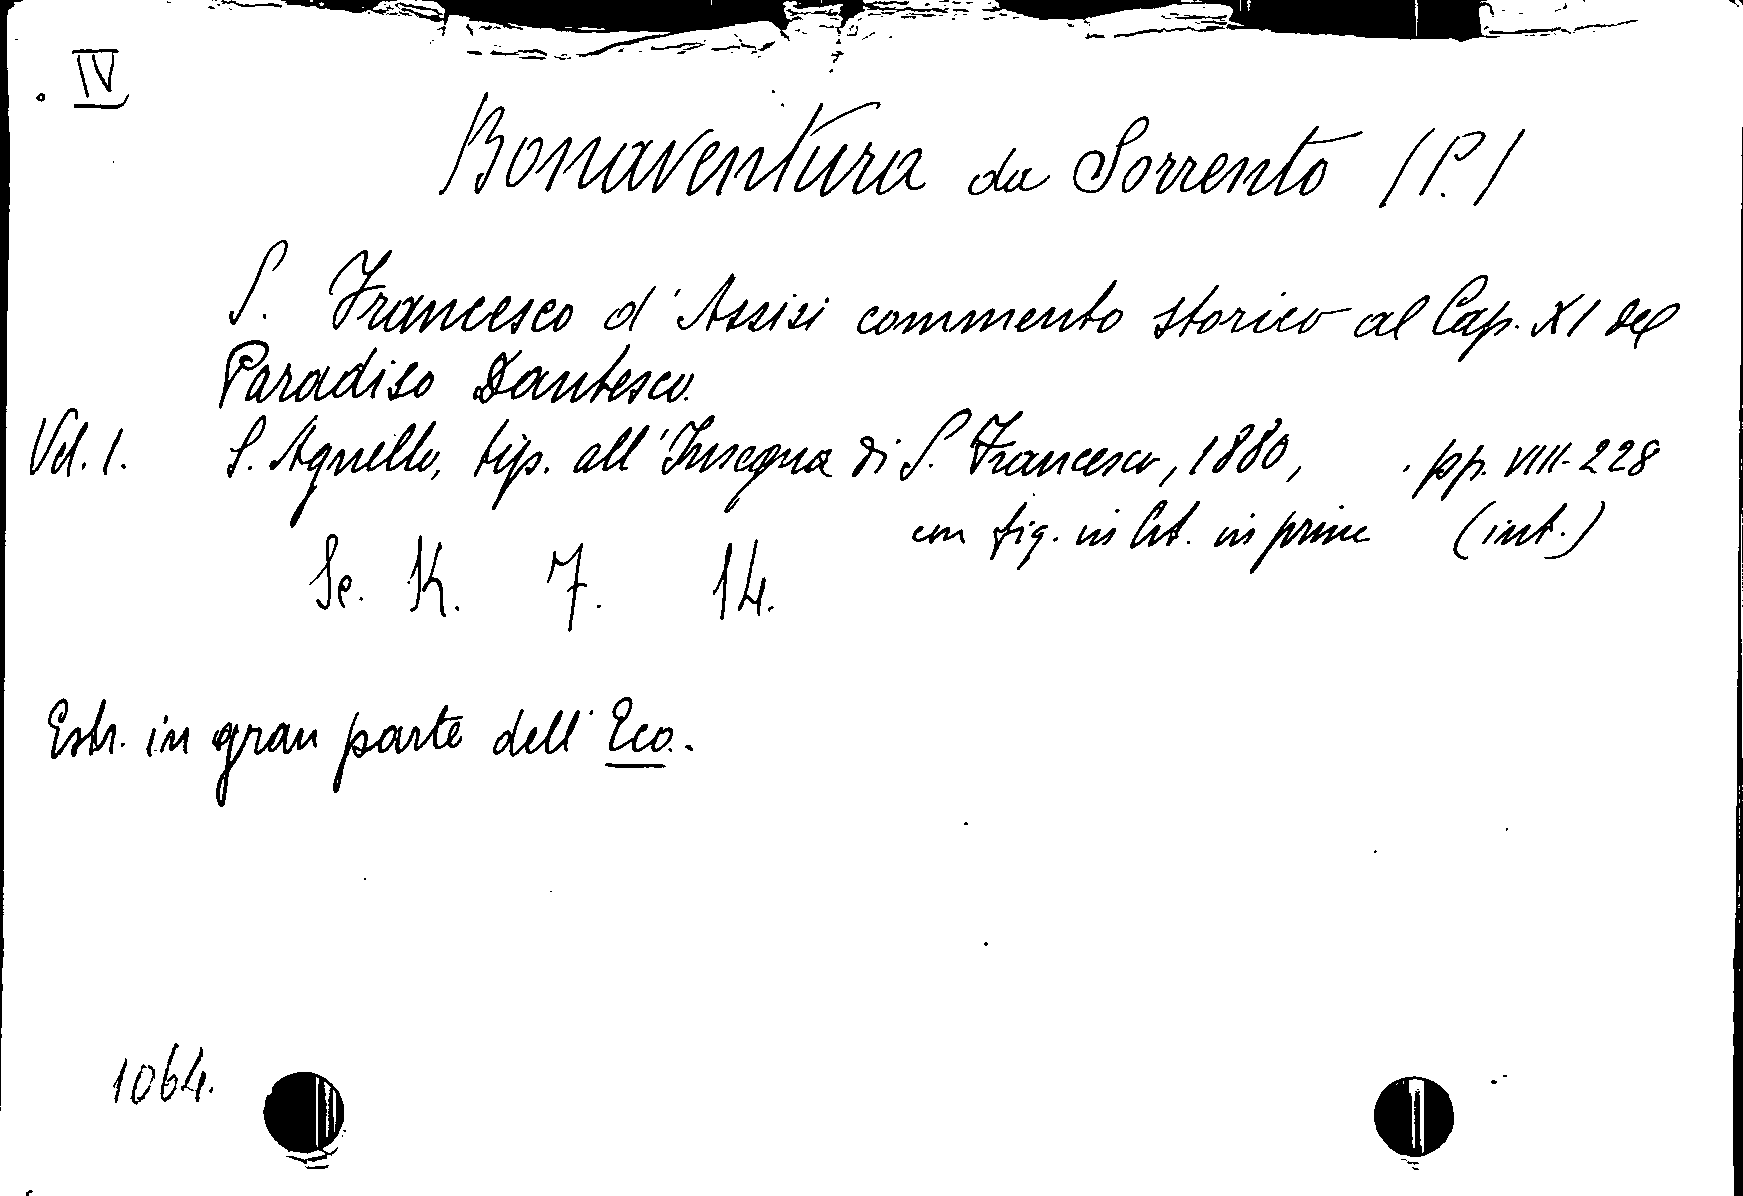 IV
Bonaventura da Sorrento (P.)
S. Francesco d'Assisi commento storico al Cap. XI del
Paradiso Dantesco.
Vol. 1. S. Agnello, tip. all'Insegna di S. Francesco, 1880, pp. VIII-228
con fig. in lit. in princ (int.)
Se. K. 7. 14.
Estr. in gran parte dell'Eco.
1064.